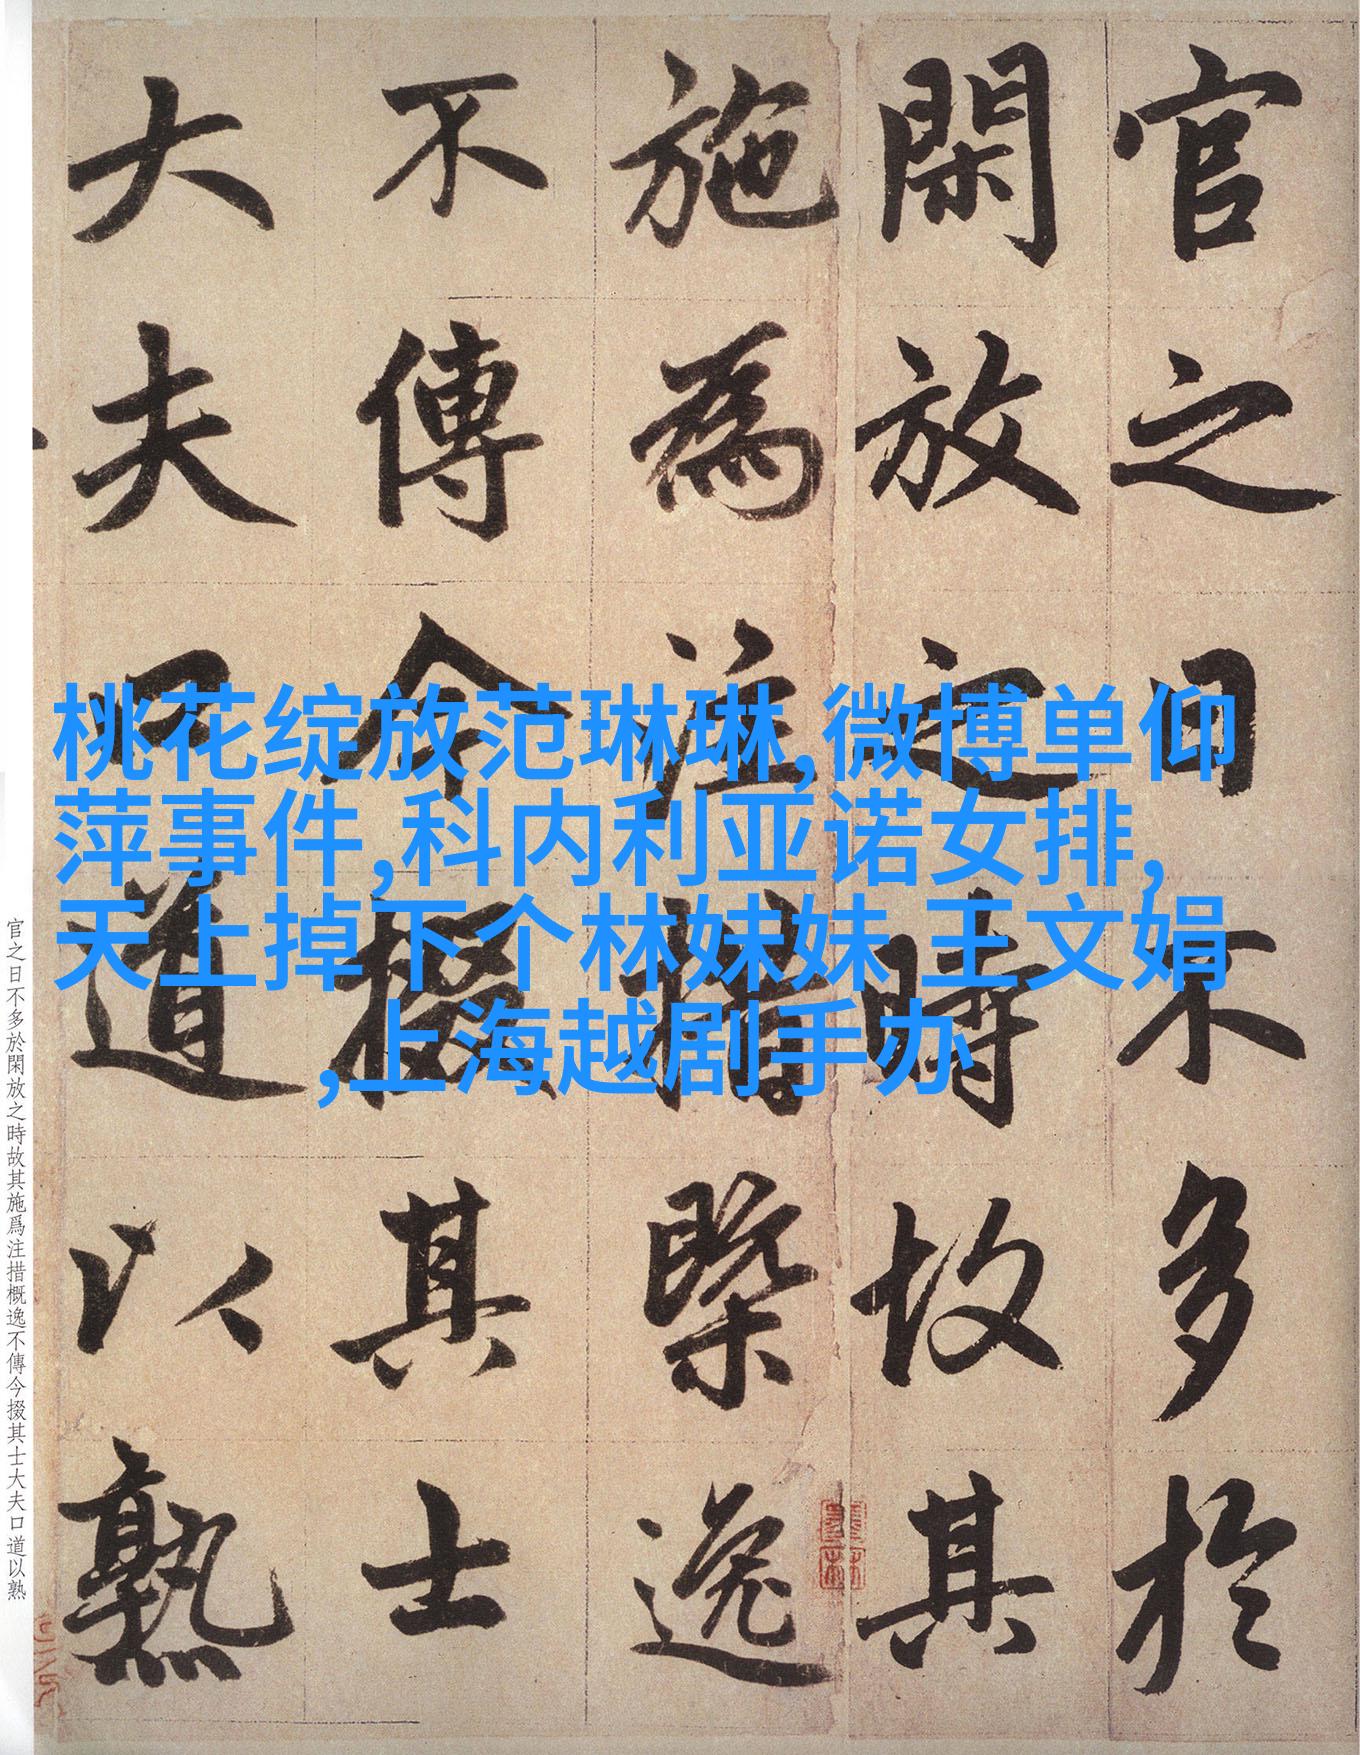 官之日不多於
閑放之時故其
施為注措槩逸
不傳今掇其士
大夫口道以熟
桃花绽放范琳琳,微博单仰
萍事件,科内利亚诺女排,
天上掉下个林妹妹 王文娟
,上海越剧手办
官之日不多於閑放之時故其施爲注措概逸不傳今掇其士大夫口道以熟